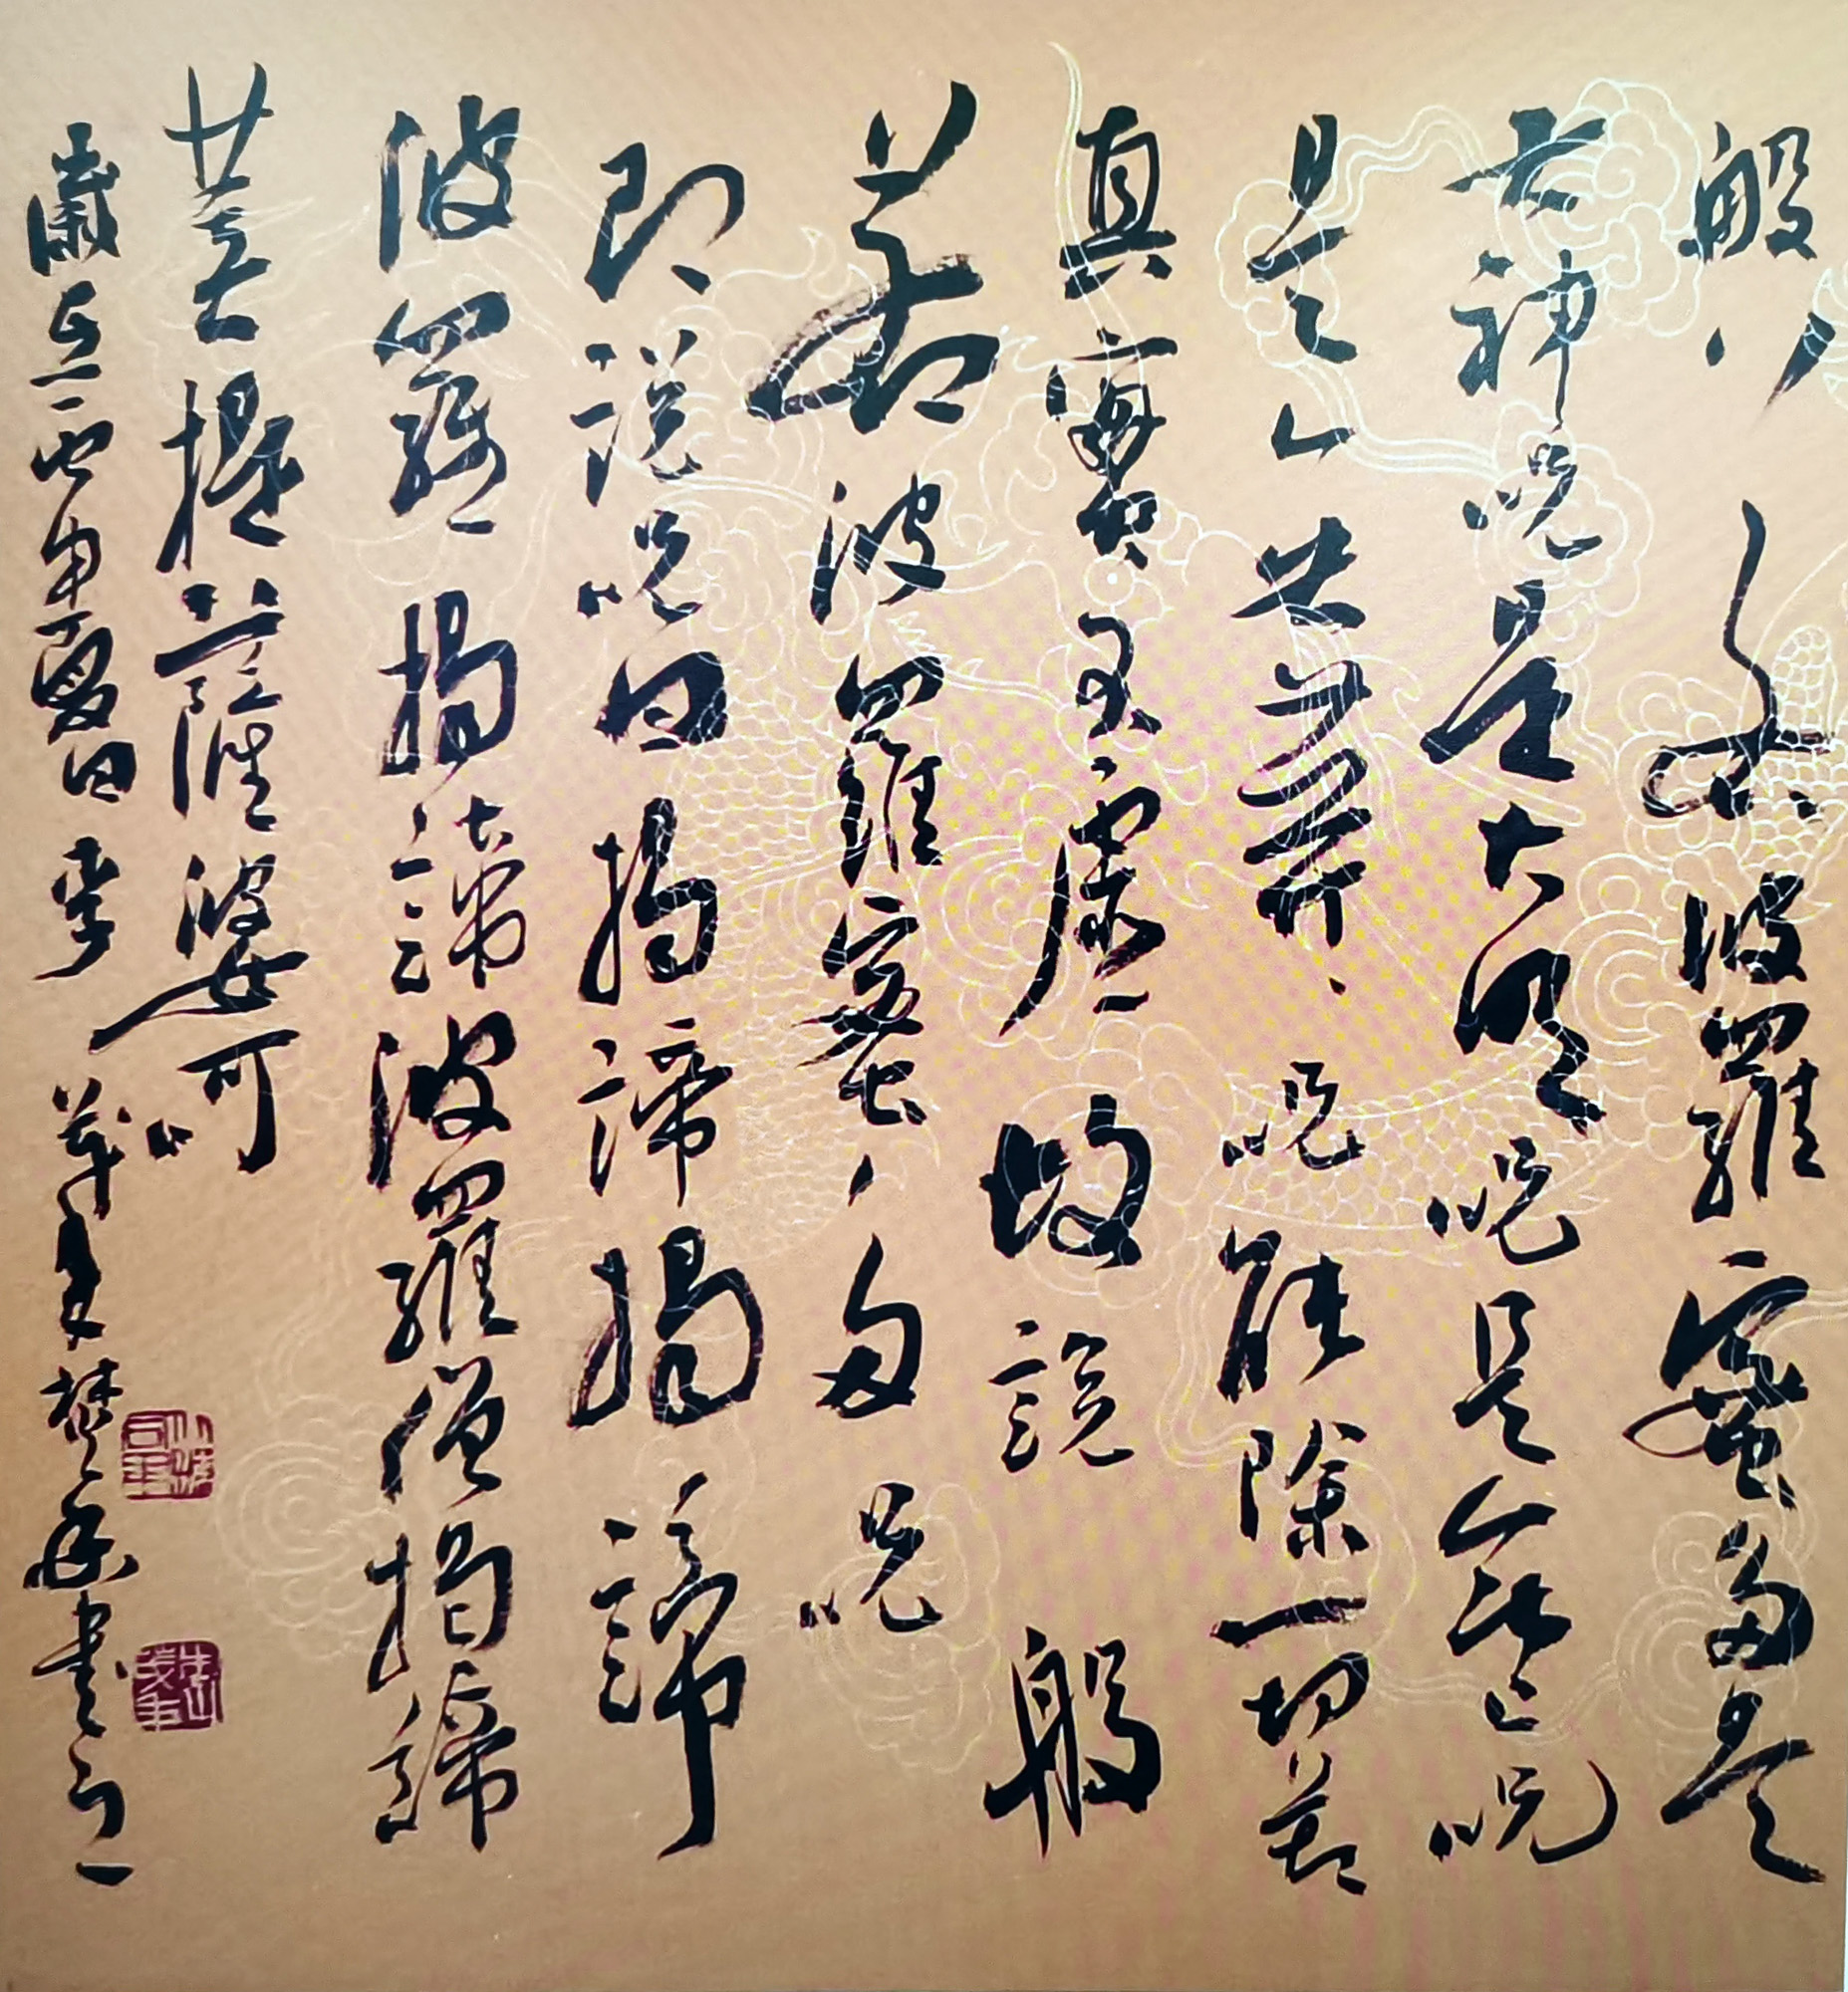 般若波羅蜜多是
大神呪是大明呪是無上呪
是無等等呪能除一切苦
真實不虛故說般
若波羅蜜多呪
即說呪曰揭諦揭諦
波羅揭諦波羅僧揭諦
菩提薩婆呵
歲在丙申夏日李書之